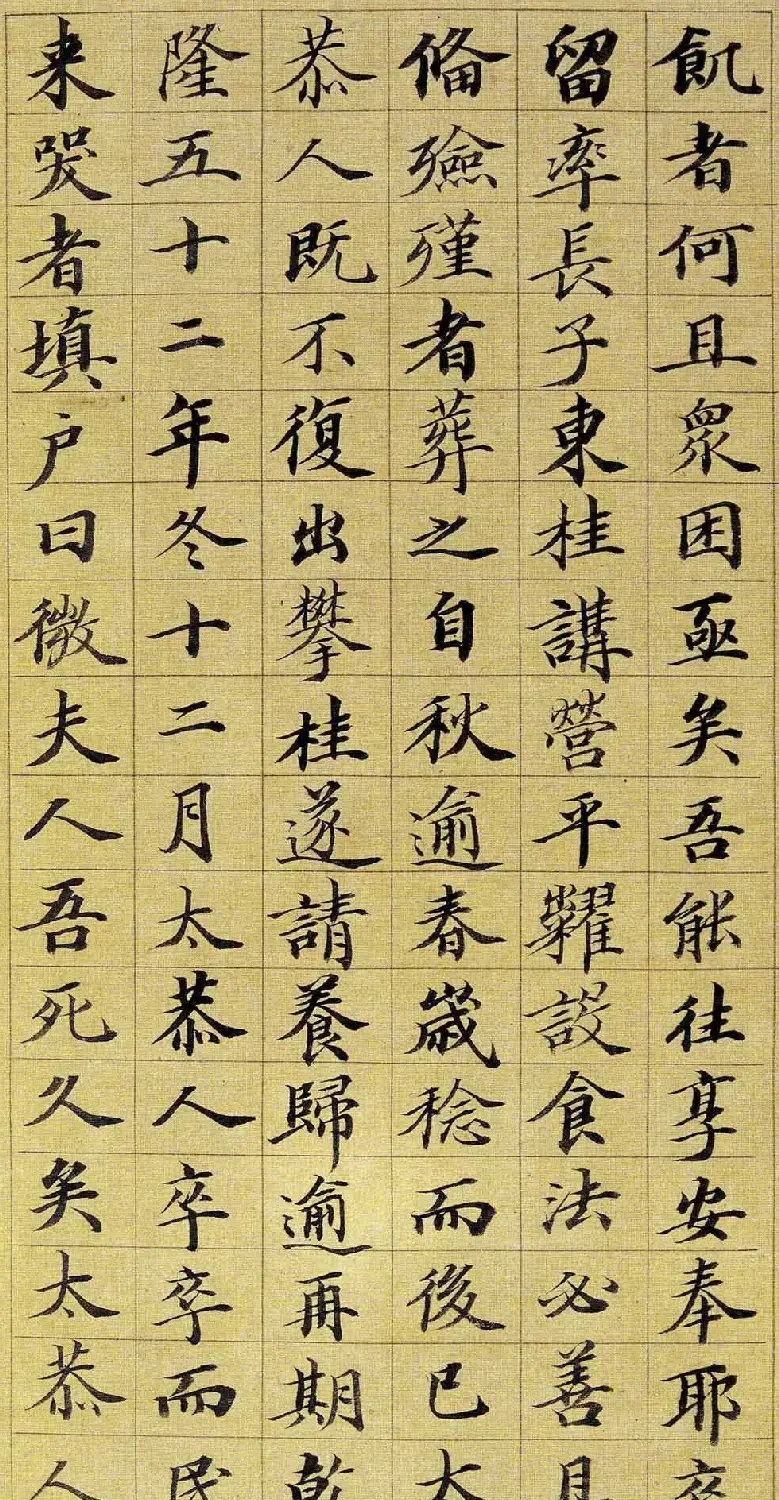 飢者何且眾困亟矣吾能往享安奉耶卒
留率長子東桂講營平糶設食法必善具
俻殮殣者葬之自秋逾春歲稔而後已太
恭人既不復出攀桂遂請養歸逾再期乾
隆五十二年冬十二月太恭人卒卒而民
来哭者填户曰微夫人吾死久矣太恭人